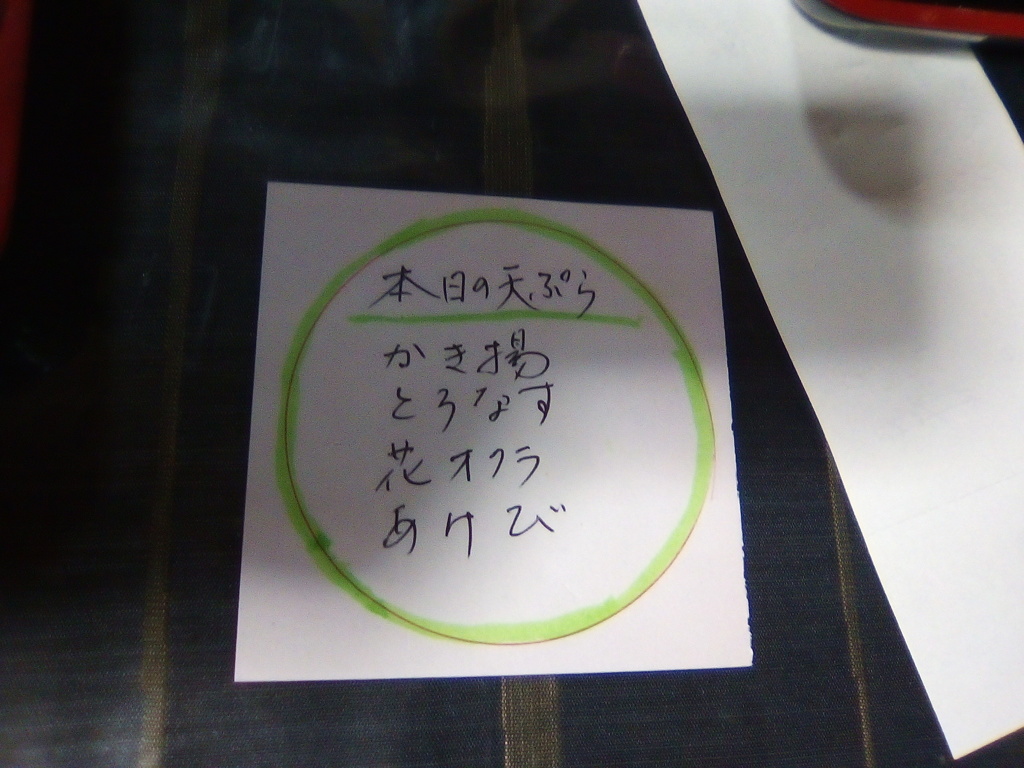 本日の天ぷら
かき揚
とろなす
花オクラ
あけび